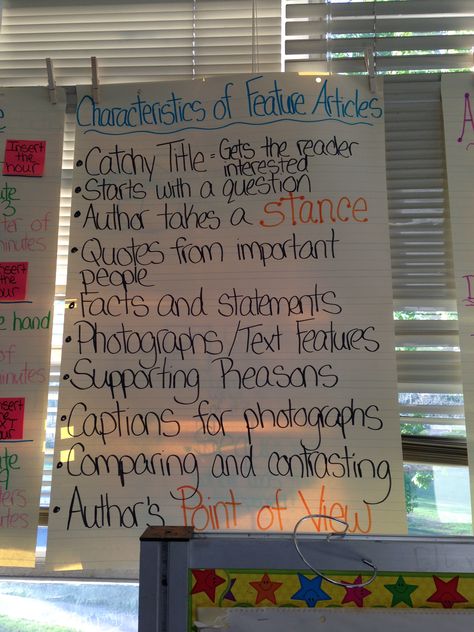 Characteristics of Feature Articles
• Catchy Title = Gets the reader
interested
• Starts with a question
• Author takes a stance
• Quotes from important
people
• Facts and statements
• Photographs/Text Features
• Supporting Reasons
• Captions for photographs
• Comparing and contrasting
• Author's Point of View
Insert the
hour
ute
ter of
minutes
Insert the
hour
e hand
of
minutes
Insert
the
hour
ute
minutes